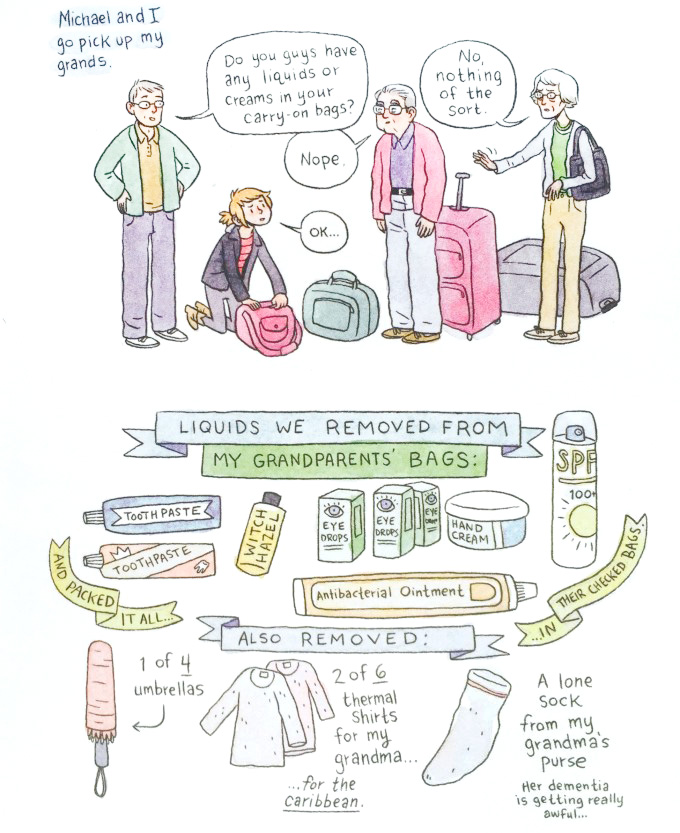 Michael and I
go pick up my
grands.
Do you guys have
any liquids or
creams in your
carry-on bags?
No,
nothing
of the
sort.
Nope.
OK...
LIQUIDS WE REMOVED FROM
MY GRANDPARENTS' BAGS:
TOOTHPASTE
TOOTHPASTE
WITCH
HAZEL
EYE
DROPS
EYE
DROPS
EYE
DROPS
HAND
CREAM
SPF
100+
Antibacterial Ointment
AND PACKED
IT ALL...
...IN
THEIR CHECKED BAGS.
ALSO REMOVED:
1 of 4
umbrellas
2 of 6
thermal
shirts
for my
grandma...
...for the
caribbean.
A lone
sock
from my
grandma's
purse
Her dementia
is getting really
awful...